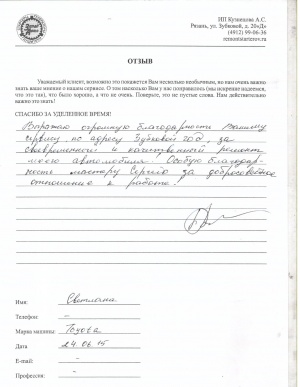 ИП Кузнецова А.С.
Рязань, ул. Зубковой, д. 20«Д»
(4912) 99-06-36
ОТЗЫВ
Уважаемый клиент, возможно это покажется Вам несколько необычным, но нам очень важно
знать ваше мнение о нашем сервисе. О том насколько Вам у нас понравилось (мы искренне надеемся,
что это так), что было хорошо, а что не очень. Поверьте, это не пустые слова. Нам действительно
важно это знать!
СПАСИБО ЗА УДЕЛЕННОЕ ВРЕМЯ!
Выражаю огромную благодарность Вашему
сервису по адресу Зубковой 20д за
своевременный и качественный ремонт
моего автомобиля. Особую благодар-
ность мастеру Сергею за добросовестное
отношение к работе!
Имя: Светлана
Телефон: –
Марка машины: Toyota
Дата 24.06.15
E-mail: –
Профессия: –